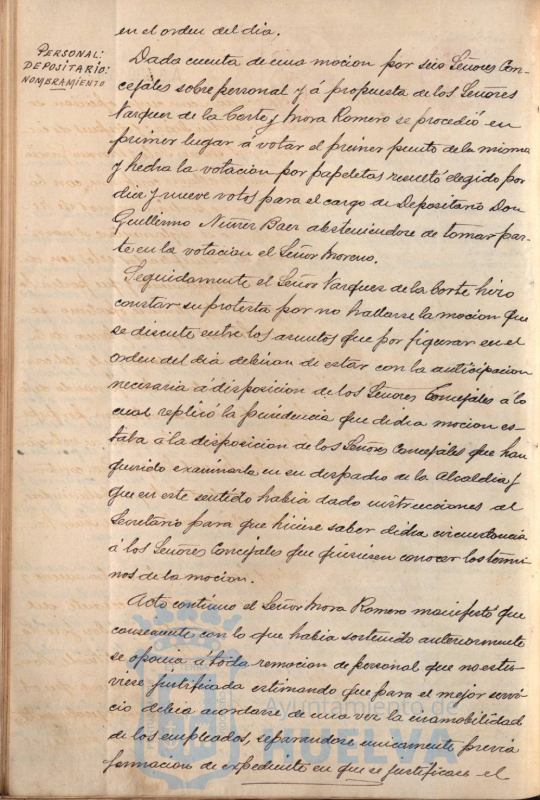 en el orden del dia.
PERSONAL:
DEPOSITARIO:
NOMBRAMIENTO
Dada cuenta de una mocion por seis Señores Con-
cejales sobre personal y á propuesta de los Señores
Vazquez de la Corte y Mora Romero se procedió en
primer lugar á votar el primer punto de la misma
y hecha la votacion por papeletas resultó elegido por
diez y nueve votos para el cargo de Depositario Don
Guillermo Núñez Baez absteniendose de tomar par-
te en la votacion el Señor Moreno.
Seguidamente el Señor Vazquez de la Corte hizo
constar su protesta por no hallarse la mocion que
se discute entre los asuntos que por figurar en el
orden del dia debieran de estar con la anticipacion
necesaria á disposicion de los Señores Concejales á lo
cual replicó la presidencia que dicha mocion es-
taba á la disposicion de los Señores Concejales que han
querido examinarla en su despacho de la Alcaldia y
que en este sentido habia dado instrucciones al
Secretario para que hiciese saber dicha circunstancia
á los Señores Concejales que quisiesen conocer los termi-
nos de la mocion.
Acto continuo el Señor Mora Romero manifestó que
consecuente con lo que habia sostenido anteriormente
se oponia á toda remocion de personal que no estu-
viese justificada estimando que para el mejor servi-
cio debia acordarse de una vez la inamobilidad
de los empleados, separandose unicamente previa
formacion de expediente en que se justificase el
Ayuntamiento de
HUELVA